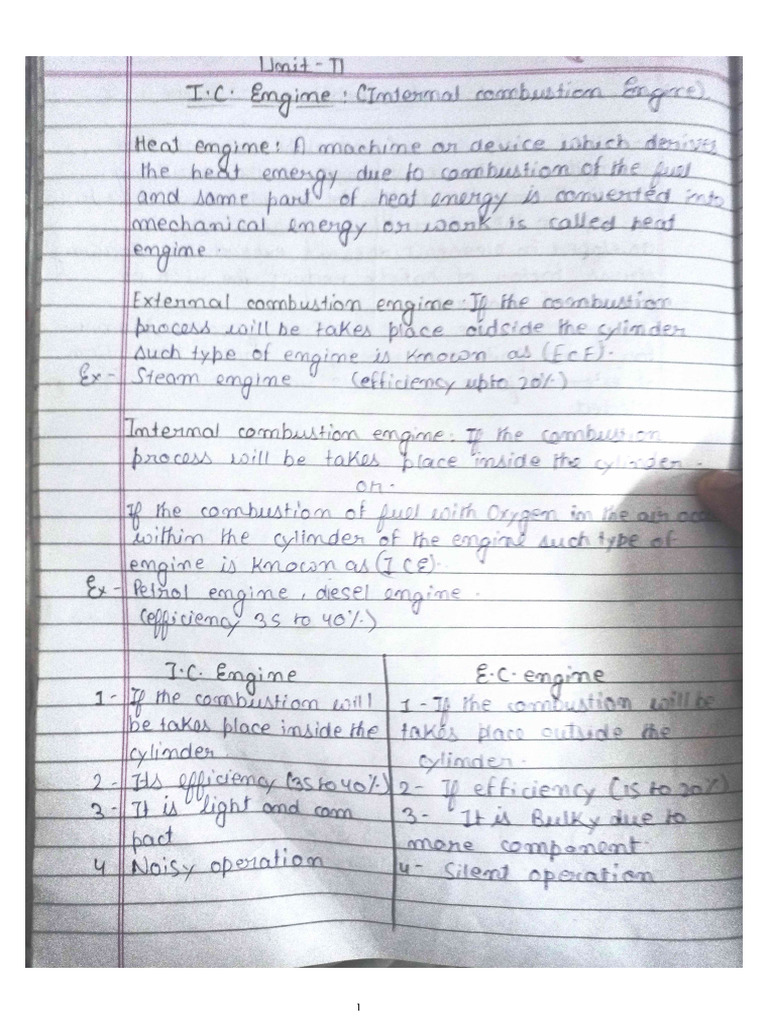 Unit-II
I.C. Engine: (Internal combustion Engine)
Heat engine: A machine or device which derives
the heat energy due to combustion of the fuel
and same part of heat energy is converted into
mechanical energy or work is called heat
engine.
External combustion engine: If the combustion
process will be takes place outside the cylinder
such type of engine is known as (ECE).
Ex- Steam engine (efficiency upto 20%)
Internal combustion engine: If the combustion
process will be takes place inside the cylinder.
or.
If the combustion of fuel with Oxygen in the air
within the cylinder of the engine such type of
engine is known as (I CE).
Ex- Petrol engine, diesel engine.
(efficiency 35 to 40%)
I.C. Engine
1- If the combustion will
be takes place inside the
cylinder.
2- Its efficiency (35 to 40%)
3- It is light and com
pact
4 Noisy operation
E.C. engine
1- If the combustion will be
takes place outside the
cylinder.
2- If efficiency (15 to 20%)
3- It is Bulky due to
more component.
4- Silent operation
1